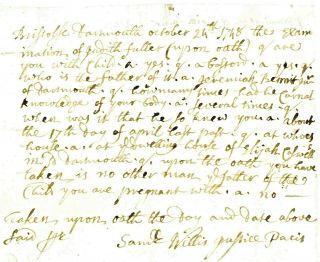 Bristoll Ss Dartmouth october 24th 1748 the Exam
ination of Judith fuller (upon oath) q are
you with Child. a yes. q. a bastord. a yes. q.
who is the father of it. a. Jeremiah Bennit
of Dartmouth. q. how many times had he Carnal
knowledge of your body. a. several times. q.
when was it that he so knew you. a. about
the 17th day of april last past. q. at whoes
house. a. at dwelling house of Elijah
in sd Dartmouth. q. upon the oath you have
taken is no other man ye father of the
Child you are pregnant with. a. no
Taken upon oath the day and date above
said pr
Saml Willis Justice Pacis